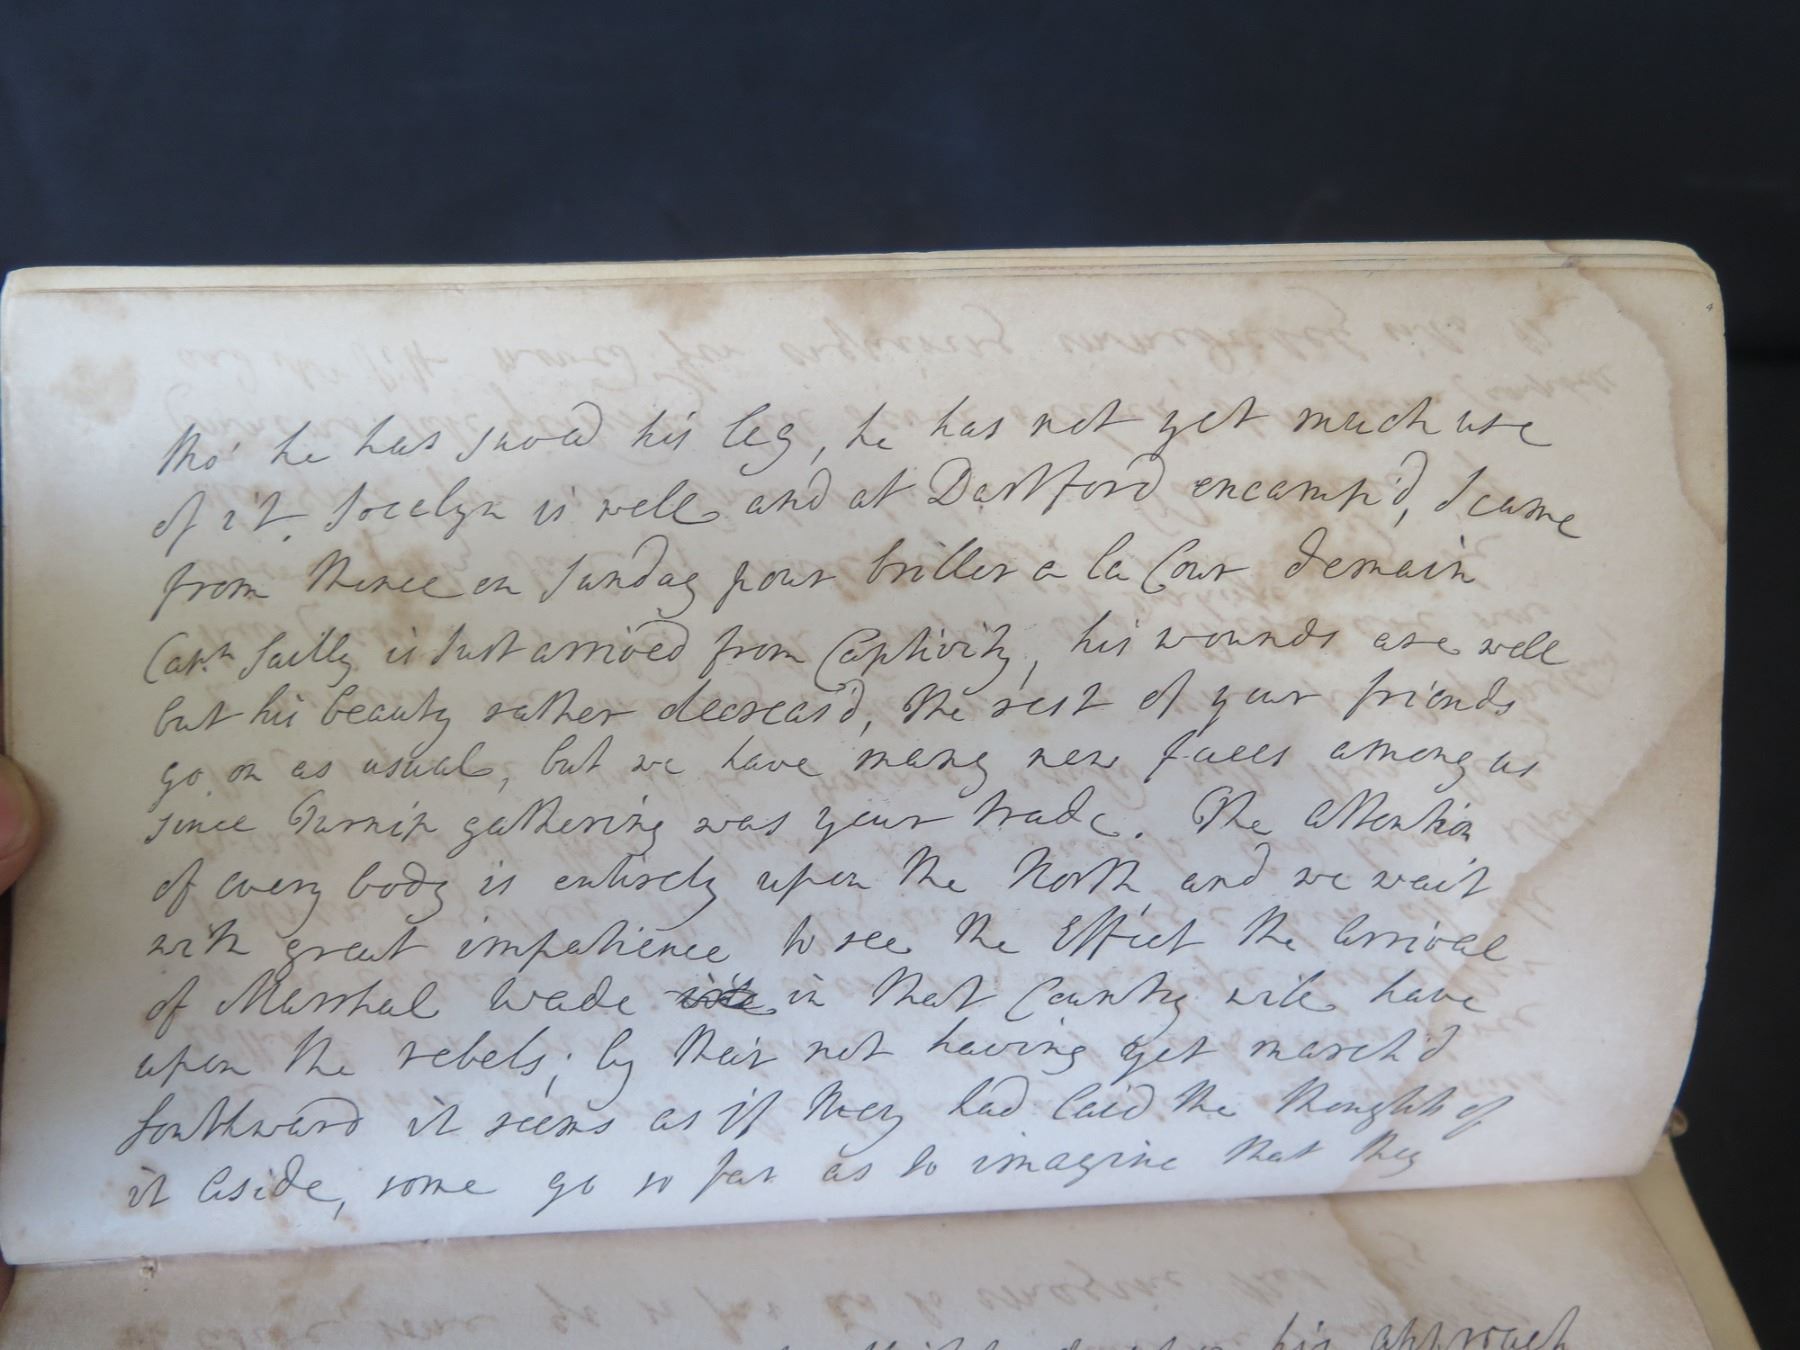 tho' he has saved his leg, he has not yet much use
of it. Jocelyn is well and at Dartford encamp'd, I came
from thence on Sunday pour briller a la Cour demain
Capn. Sailly is Just arrived from Captivity, his wounds are well
but his beauty rather decreas'd, the rest of your friends
go on as usual, but we have many new faces among us
since Turnip gathering was your trade. The attention
of every body is entirely upon the North and we wait
with great impatience to see the Effect the arrival
of Marshal Wade in that Country will have
upon the rebels; by their not having yet march'd
Southward it seems as if they had laid the thoughts of
it aside, some go so far as to imagine that they
his approach